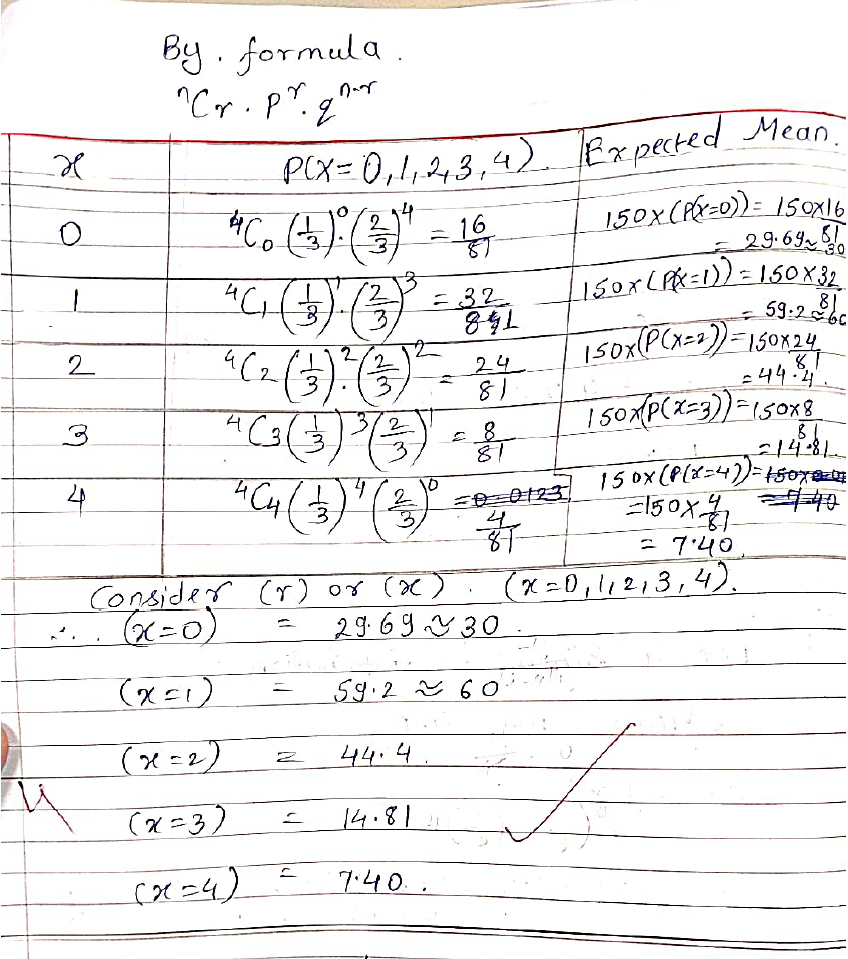 By. formula.
ⁿCr . pʳ . qⁿ⁻ʳ
x P(X=0,1,2,3,4). Expected Mean.
0 ⁴C₀ (1/3)⁰.(2/3)⁴ = 16/81 150x(P(X=0)) = 150x16/81
= 29.69 ≈ 30
1 ⁴C₁ (1/3)¹.(2/3)³ = 32/81 150x(P(X=1)) = 150x32/81
= 59.2 ≈ 60
2 ⁴C₂ (1/3)².(2/3)² = 24/81 150x(P(X=2)) = 150x24/81
= 44.4.
3 ⁴C₃ (1/3)³(2/3)¹ = 8/81 150x(P(X=3)) = 150x8/81
= 14.81.
4 ⁴C₄ (1/3)⁴ (2/3)⁰ = 0.0123 150x(P(X=4)) =
4/81 = 150x 4/81 = 7.40
= 7.40
Consider (r) or (x). (x=0,1,2,3,4).
∴ (x=0) = 29.69 ≈ 30.
(x=1) = 59.2 ≈ 60
(x=2) = 44.4.
(x=3) = 14.81
(x=4) = 7.40.